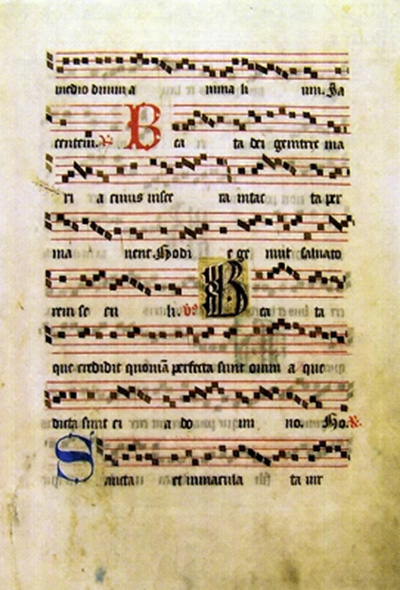 medio divum a nima li um. Ja
centem. R. B ea ta dei genitrix ma
ri a cuius visce ra intac ta per
ma nent Hodi e ge nuit salvato
rem se cu li. Vs B ea ta
que credidit quoniã perfecta sunt omni a que
dicta sunt ei a do mi no. Ho. R.
S ancta et immacula ta vir